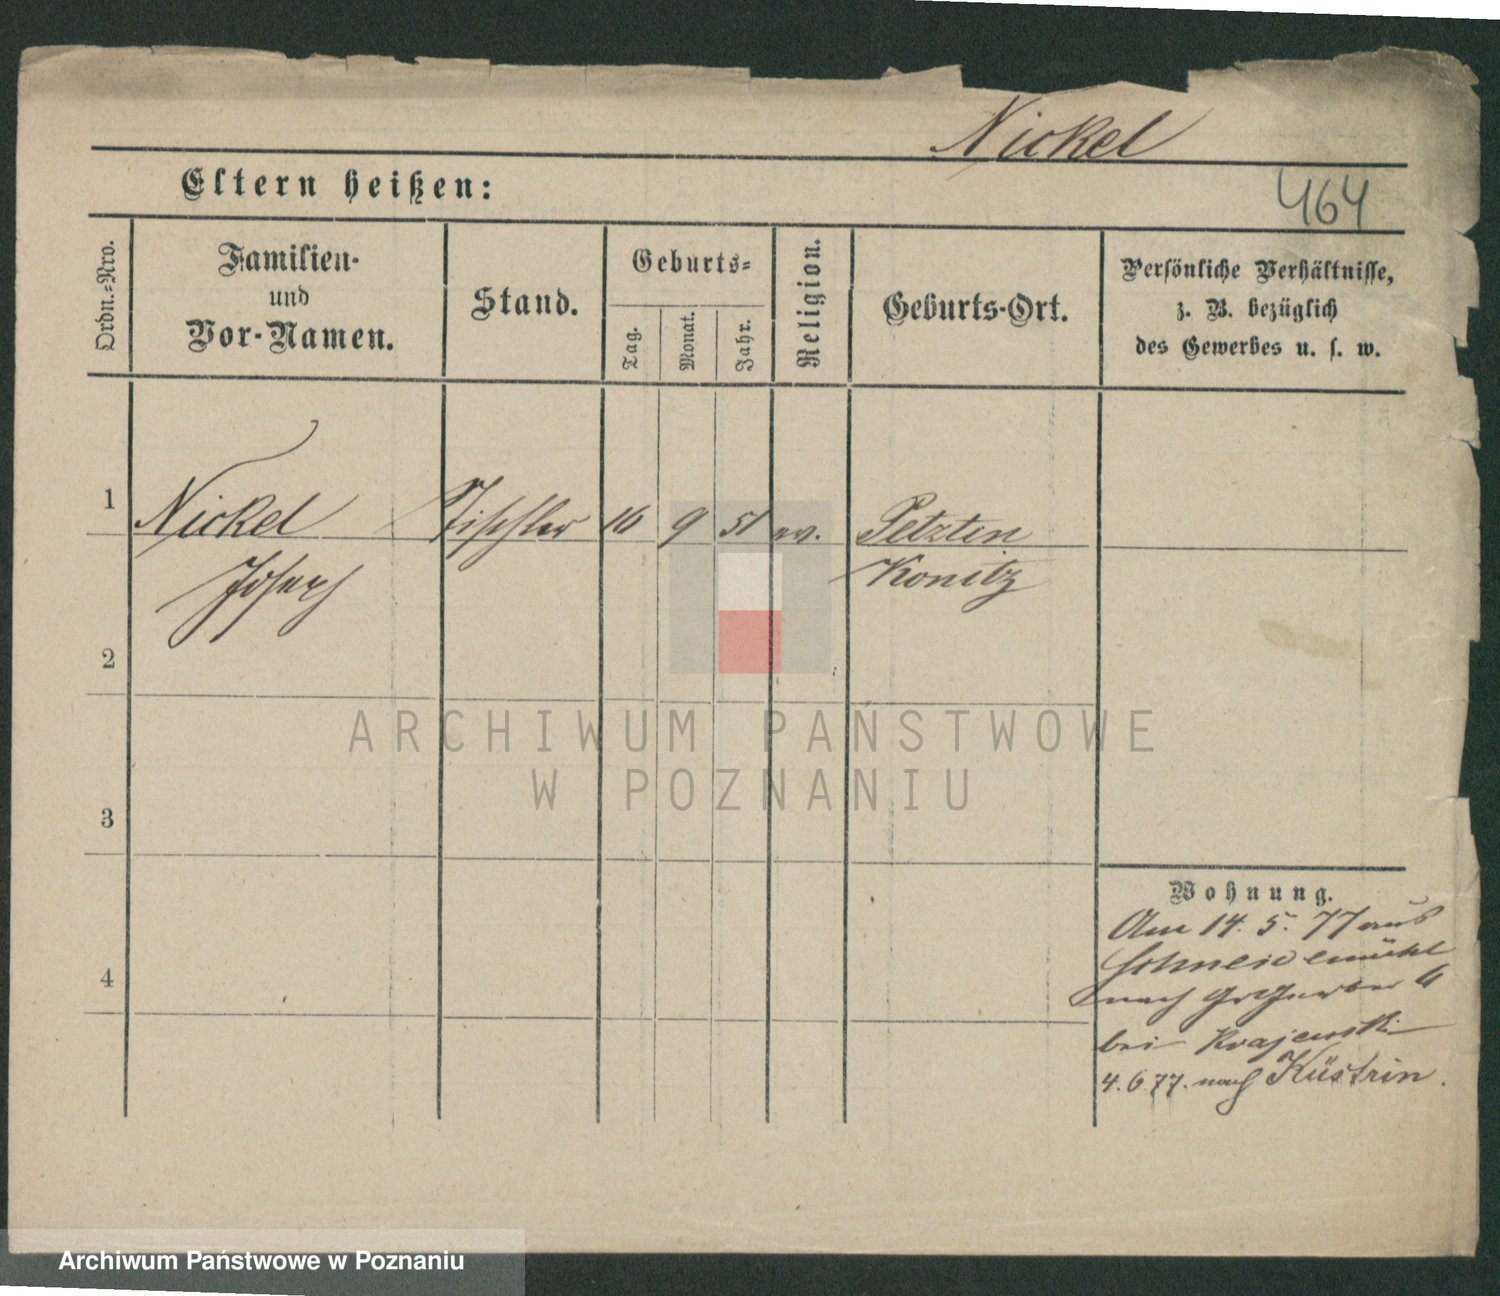 Nickel
Eltern heißen:
464
Ordn.-Nro.
Familien-
und
Vor-Namen.
Stand.
Geburts-
Tag.
Monat.
Jahr.
Religion.
Geburts-Ort.
Persönliche Verhältnisse,
z. B. bezüglich
des Gewerbes u. s. w.
1
Nickel Tischler 16 9 51 Petztin
Joseph Konitz
2
ARCHIWUM PAŃSTWOWE
W POZNANIU
3
Wohnung.
Am 14. 5. 77 aus
Schneidemühl
4
nach Gr Gerber
bei Krajewski
4. 6. 77. nach Küstrin.
Archiwum Państwowe w Poznaniu